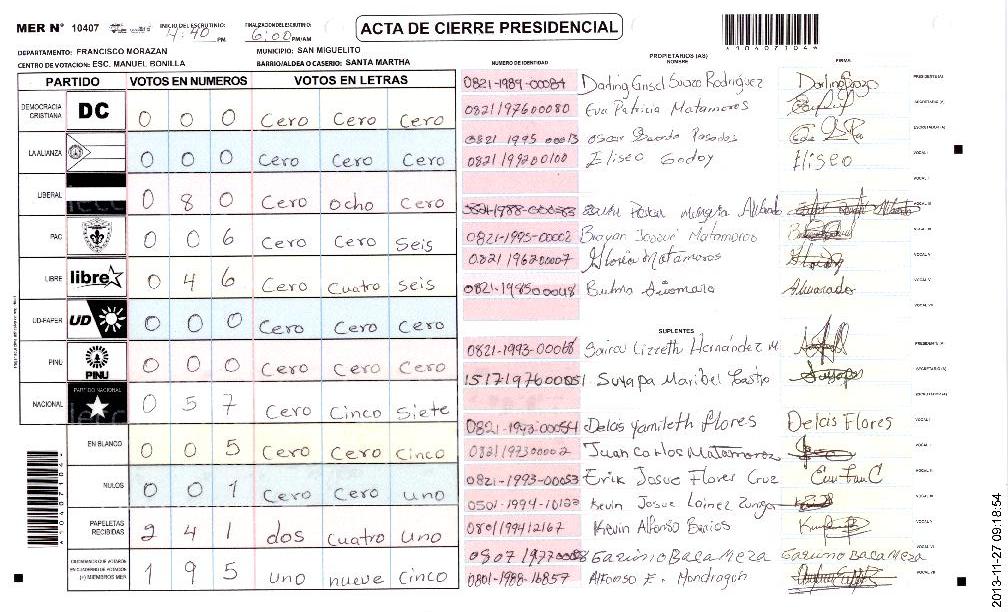 MER N° 10407 INICIO DEL ESCRUTINIO: 4:40 PM FINALIZACION DEL ESCRUTINIO: 6:00 PM/AM
ACTA DE CIERRE PRESIDENCIAL
DEPARTAMENTO: FRANCISCO MORAZAN MUNICIPIO: SAN MIGUELITO
CENTRO DE VOTACION: ESC. MANUEL BONILLA BARRIO/ALDEA O CASERIO: SANTA MARTHA
PARTIDO VOTOS EN NUMEROS VOTOS EN LETRAS
DEMOCRACIA CRISTIANA DC 0 0 0 Cero Cero Cero
LA ALIANZA 0 0 0 Cero Cero Cero
LIBERAL 0 8 0 Cero ocho Cero
PAC 0 0 6 Cero Cero Seis
LIBRE libre 0 4 6 Cero Cuatro seis
UD-FAPER UD 0 0 0 Cero Cero Cero
PINU PINU 0 0 0 Cero Cero Cero
NACIONAL PARTIDO NACIONAL 0 5 7 Cero Cinco Siete
EN BLANCO 0 0 5 Cero Cero Cinco
NULOS 0 0 1 Cero Cero uno
PAPELETAS RECIBIDAS 2 4 1 dos Cuatro Uno
CIUDADANOS QUE VOTARON EN CUADERNO DE VOTACION (+) MIEMBROS MER 1 9 5 uno nueve Cinco
NUMERO DE IDENTIDAD PROPIETARIOS (AS) NOMBRE FIRMA
0821-1989-00084 Darling Grisel Suazo Rodriguez PRESIDENTE (A)
0821197600080 Eva Patricia Matamoros SECRETARIO (A)
0821 1995 00013 Oscar Eduardo Posadas ESCRUTADOR (A)
0821199200100 Eliseo Godoy Eliseo VOCAL I
VOCAL II
VOCAL III
0821-1995-00002 Brayan Josué Matamoros
0821196200007 Gloria Matamoros VOCAL V
0821-1985-00048 Alvarado
SUPLENTES
0821-1993-00068 Lizzeth Hernández M. PRESIDENTE (A)
1517197600051 Suyapa Maribel Castro SECRETARIO (A)
ESCRUTADOR (A)
0821-1943-00054 Delcis Yamileth flores Delcis Flores VOCAL I
0821197300002 Juan Carlos Matamoros
0821-1993-00053 Erik Josue Flores Cruz
0501-1994-10122 Kevin Josue Lainez Zuniga
0801199412167 Kevin Alfonso
Baca Meza Baca Meza
0801-1988-16857 Alfonso E. Mondragon VOCAL VII
2013-11-27 09:18:54